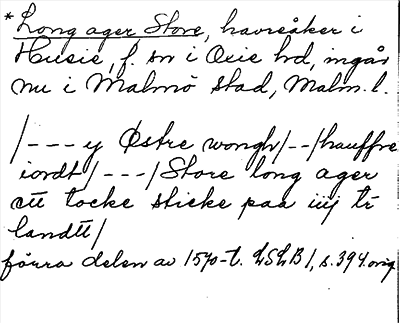 * Long ager Store, havreåker i
Husie, f. sn i Oxie hd, ingår
nu i Malmö stad, Malm. l.
/--- y Østre wongh/--/hauffre
iordt/---/Store long ager
ett tocke sticke paa iiij tr
landtt/
förra delen av 1570-t. LSLB 1, s. 394. orig